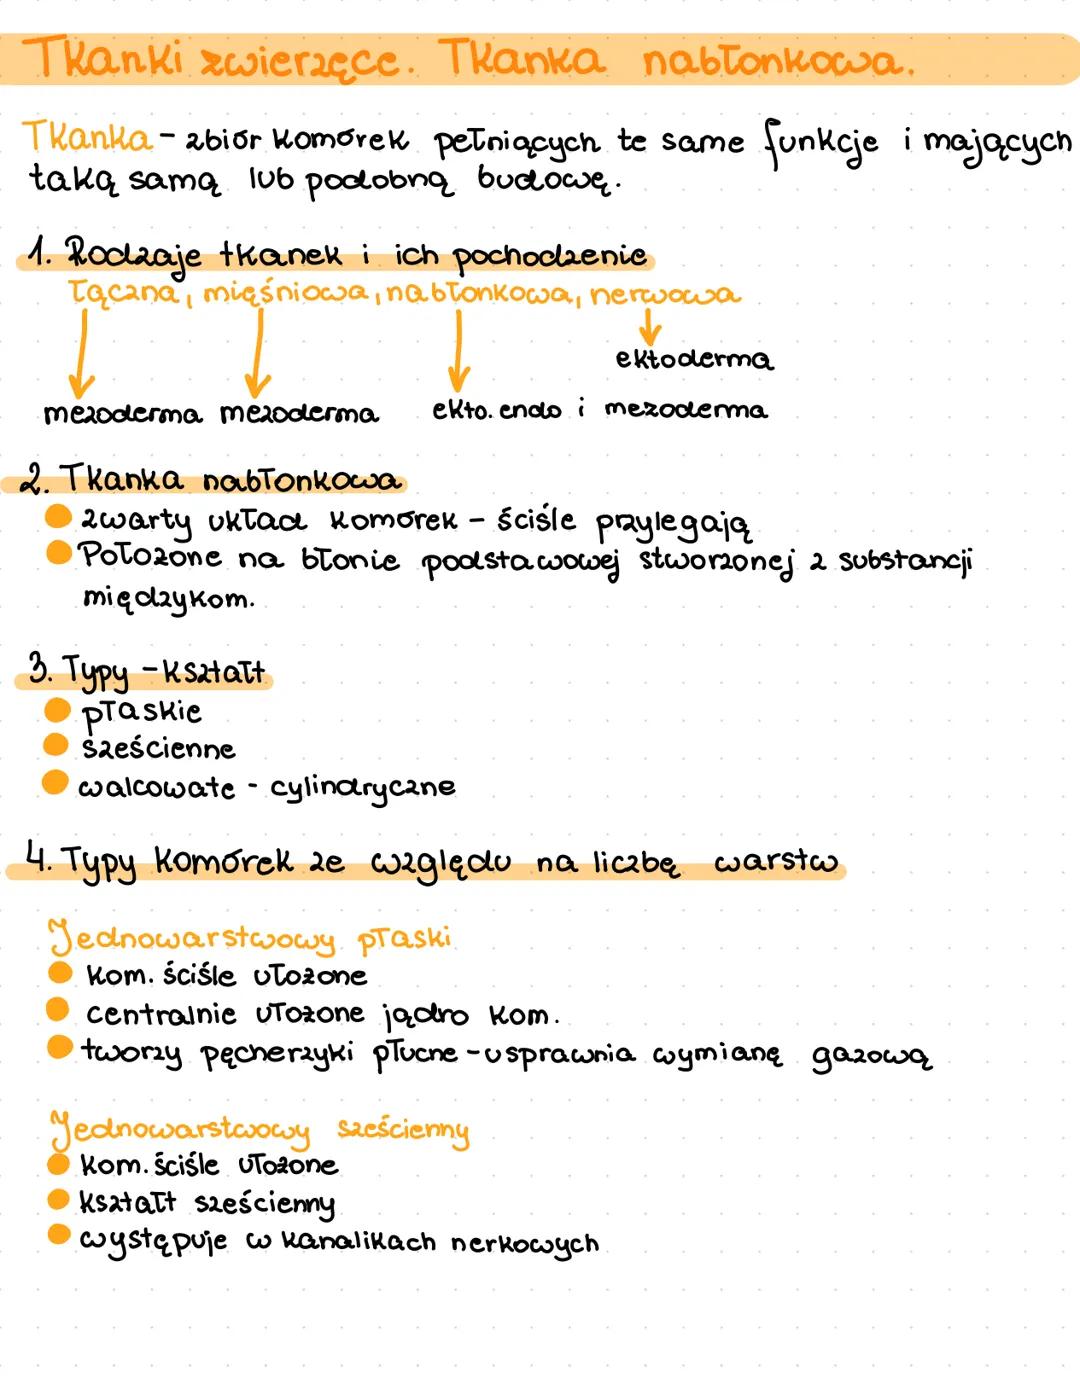 Tkanki zwierzęce. Tkanka nabłonkowa.
Tkanka - zbiór komórek pełniących te same funkcje i mających
taką samą lub podobną budowę.
1. Rodzaje tkanek i ich pochodzenie
łączna, mięśniowa, nabłonkowa, nerwowa
ektoderma
mezoderma mezoderma ekto. endo i mezoderma
2. Tkanka nabłonkowa
zwarty układ komórek - ściśle przylegają
Położone na błonie podstawowej stworzonej z substancji
międzykom.
3. Typy - kształt
płaskie
sześcienne
walcowate - cylindryczne
4. Typy komórek ze względu na liczbę warstw
Jednowarstwowy płaski
kom. ściśle ułożone
centralnie ułożone jądro kom.
tworzy pęcherzyki płucne - usprawnia wymianę gazową
Jednowarstwowy sześcienny
kom. ściśle ułożone
kształt sześcienny
występuje w kanalikach nerkowych